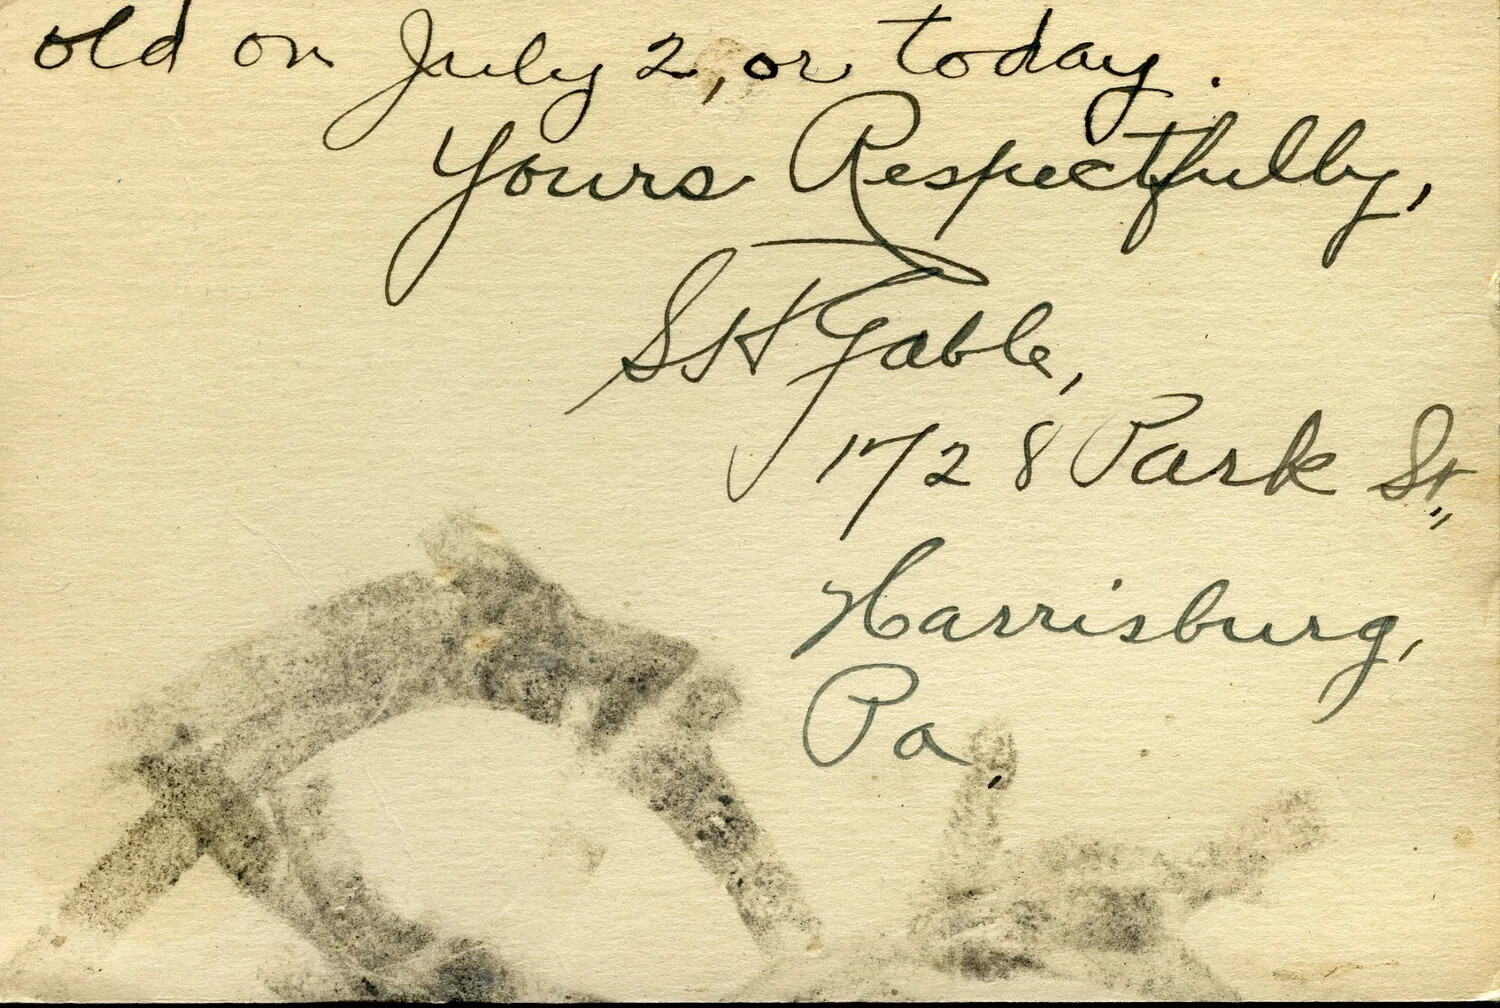 old on July 2, or today.
Yours Respectfully,
SH Gable,
1728 Park St.,
Harrisburg,
Pa.